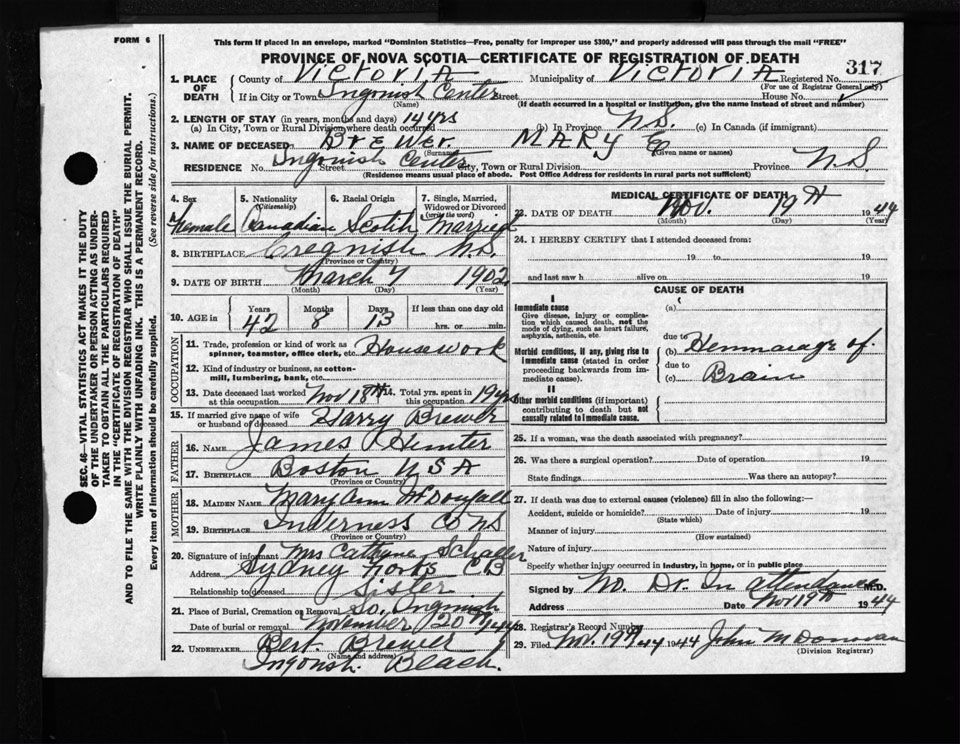 FORM 6
This form if placed in an envelope, marked "Dominion Statistics—Free, penalty for improper use $300," and properly addressed will pass through the mail "FREE"
PROVINCE OF NOVA SCOTIA—CERTIFICATE OF REGISTRATION OF DEATH
317
SEC. 46—VITAL STATISTICS ACT MAKES IT THE DUTY
OF THE UNDERTAKER OR PERSON ACTING AS UNDER-
TAKER TO OBTAIN ALL THE PARTICULARS REQUIRED
IN THE "CERTIFICATE OF REGISTRATION OF DEATH"
AND TO FILE THE SAME WITH THE DIVISION REGISTRAR WHO SHALL ISSUE THE BURIAL PERMIT.
WRITE PLAINLY WITH UNFADING INK. THIS IS A PERMANENT RECORD.
Every item of information should be carefully supplied. (See reverse side for instructions.)
1. PLACE OF DEATH County of Victoria Municipality of Victoria Registered No.
(For use of Registrar General only)
If in City or Town Ingonish Center Street House No.
(Name) (If death occurred in a hospital or institution, give the name instead of street and number)
2. LENGTH OF STAY (in years, months and days) 14 yrs
(a) In City, Town or Rural Division where death occurred (b) In Province N.S. (c) In Canada (if immigrant)
3. NAME OF DECEASED Brewer MARY E
(Surname) (Given name or names)
RESIDENCE No. Street Ingonish Center City, Town or Rural Division Province N.S
(Residence means usual place of abode. Post Office Address for residents in rural parts not sufficient)
4. Sex 5. Nationality (Citizenship) 6. Racial Origin 7. Single, Married, Widowed or Divorced (write the word)
Female Canadian Scotch Married
8. BIRTHPLACE Cregnish N.S.
(Province or Country)
9. DATE OF BIRTH March 7 1902
(Month) (Day) (Year)
10. AGE in Years Months Days If less than one day old
42 8 13 hrs. or min.
OCCUPATION
11. Trade, profession or kind of work as spinner, teamster, office clerk, etc. Housework
12. Kind of industry or business, as cotton-mill, lumbering, bank, etc.
13. Date deceased last worked at this occupation Nov 18th 14. Total yrs. spent in this occupation 19 yrs
15. If married give name of wife or husband of deceased Harry Brewer
FATHER
16. Name James Hunter
17. Birthplace Boston USA
(Province or Country)
MOTHER
18. Maiden Name Mary Ann McDougall
19. Birthplace Inderness Co NS
(Province or Country)
20. Signature of informant Mrs
Address Sydney CB
Relationship to deceased Sister
21. Place of Burial, Cremation or Removal So. Ingonish
Date of burial or removal November 20th /44
22. UNDERTAKER Bert. Brewer
(Name and address)
Ingonish. Beach.
MEDICAL CERTIFICATE OF DEATH
23. DATE OF DEATH Nov. 1944
(Month) (Day) (Year)
24. I HEREBY CERTIFY that I attended deceased from:
19 to 19
and last saw h alive on 19
CAUSE OF DEATH
I
Immediate cause
Give disease, injury or complication which caused death, not the mode of dying, such as heart failure, asphyxia, asthenia, etc.
(a)
due to
Morbid conditions, if any, giving rise to immediate cause (stated in order proceeding backwards from immediate cause).
(b) Hemmarage of
due to
(c) Brain
II
Other morbid conditions (if important) contributing to death but not causally related to immediate cause.
25. If a woman, was the death associated with pregnancy?
26. Was there a surgical operation? Date of operation 19
State findings Was there an autopsy?
27. If death was due to external causes (violence) fill in also the following:—
Accident, suicide or homicide? Date of injury 19
(State which)
Manner of injury
(How sustained)
Nature of injury
Specify whether injury occurred in industry, in home, or in public place
Signed by No. Dr. In attendance M.D.
Address Date Nov 19th 1944
28. Registrar's Record Number
29. Filed Nov. 19th /44 1944 John M Donovan
(Division Registrar)